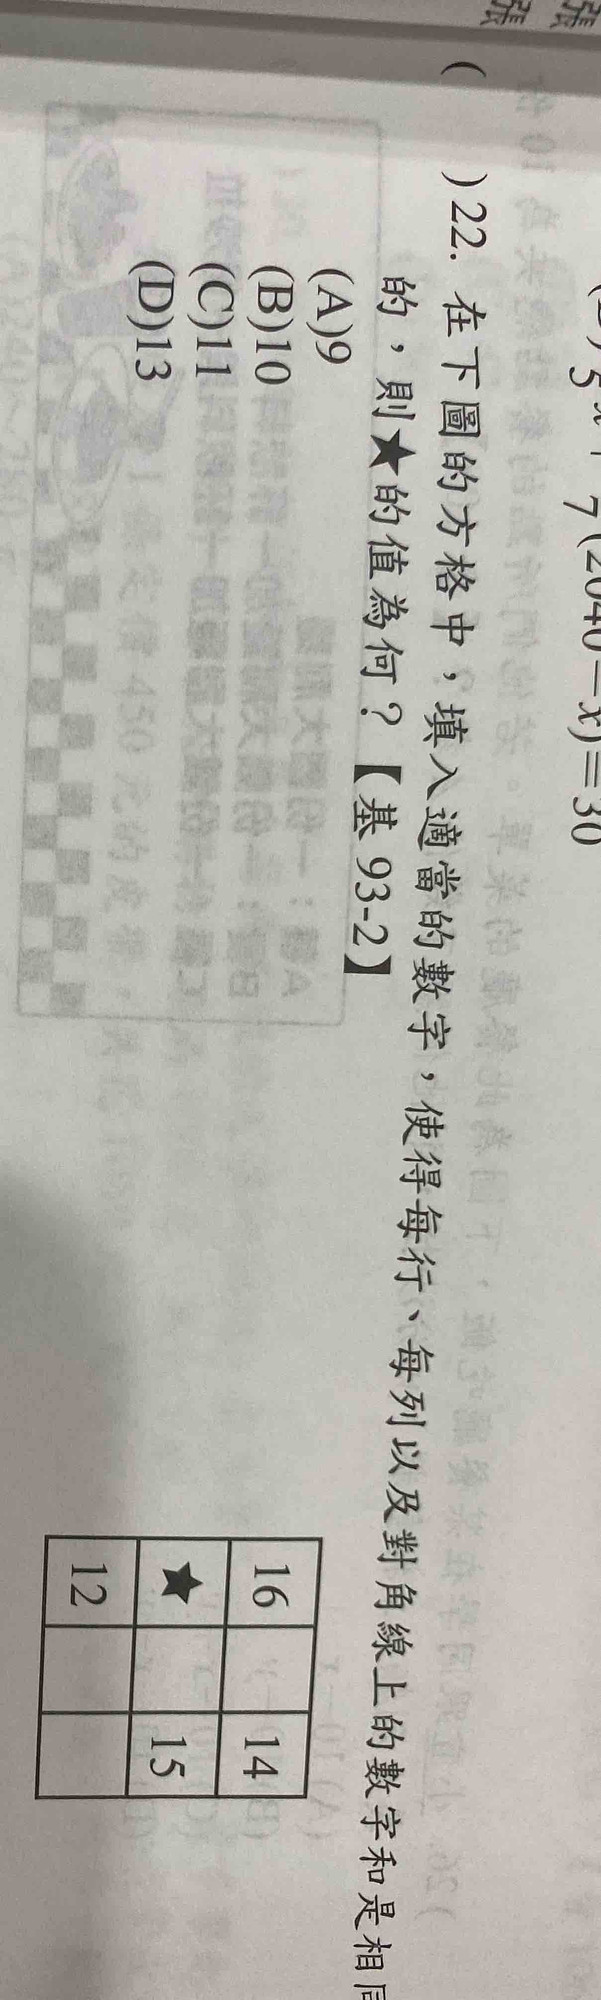 張
張
7(2040−x)=30
( )22. 在下圖的方格中，填入適當的數字，使得每行、每列以及對角線上的數字和是相同
的，則★的值為何？【基 93-2】
(A)9
(B)10
(C)11
(D)13
16 14
★ 15
12